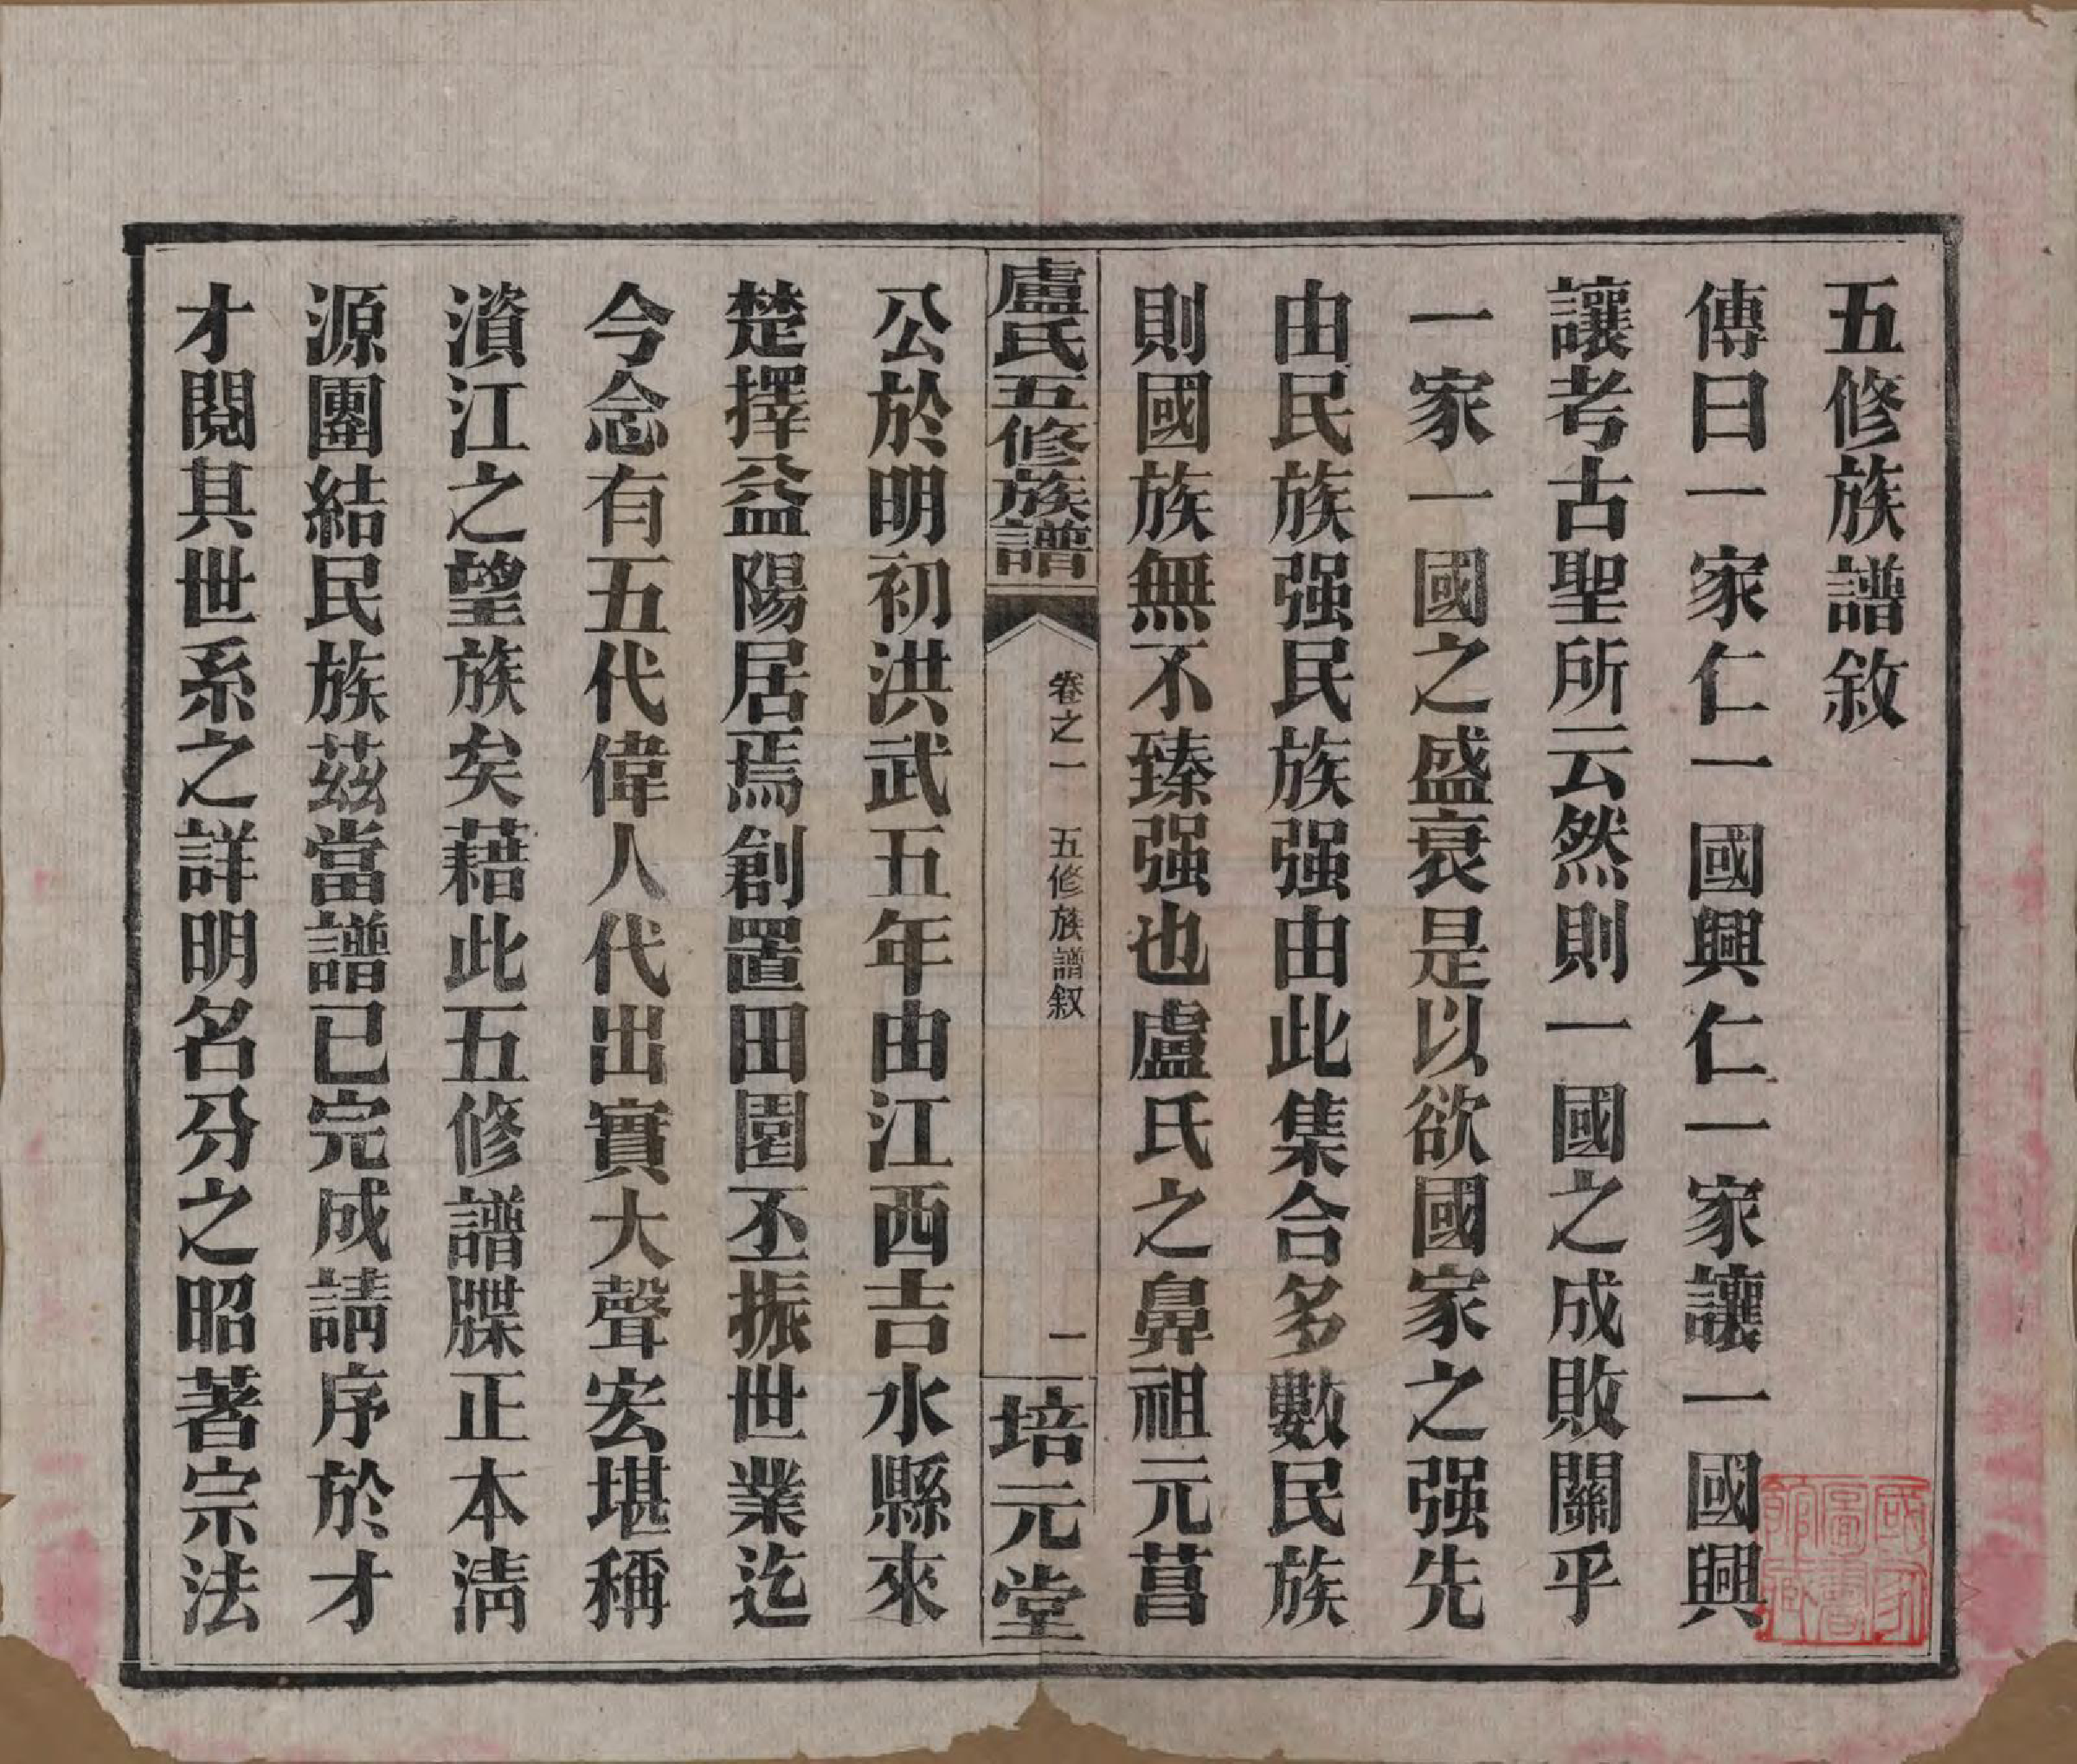 五修族譜敘
傳曰一家仁一國興仁一家讓一國興
讓考古聖所云然則一國之成敗關乎
一家一國之盛衰是以欲國家之强先
由民族强民族强由此集合多數民族
則國族無不臻强也盧氏之鼻祖元菖
盧氏五修族譜
卷之一 五修族譜叙
一
培元堂
公於明初洪武五年由江西吉水縣來
楚擇益陽居焉創置田園丕振世業迄
今念有五代偉人代出實大聲宏堪稱
濱江之望族矣藉此五修譜牒正本淸
源團結民族茲當譜已完成請序於才
才閱其世系之詳明名分之昭著宗法
國家圖書館藏